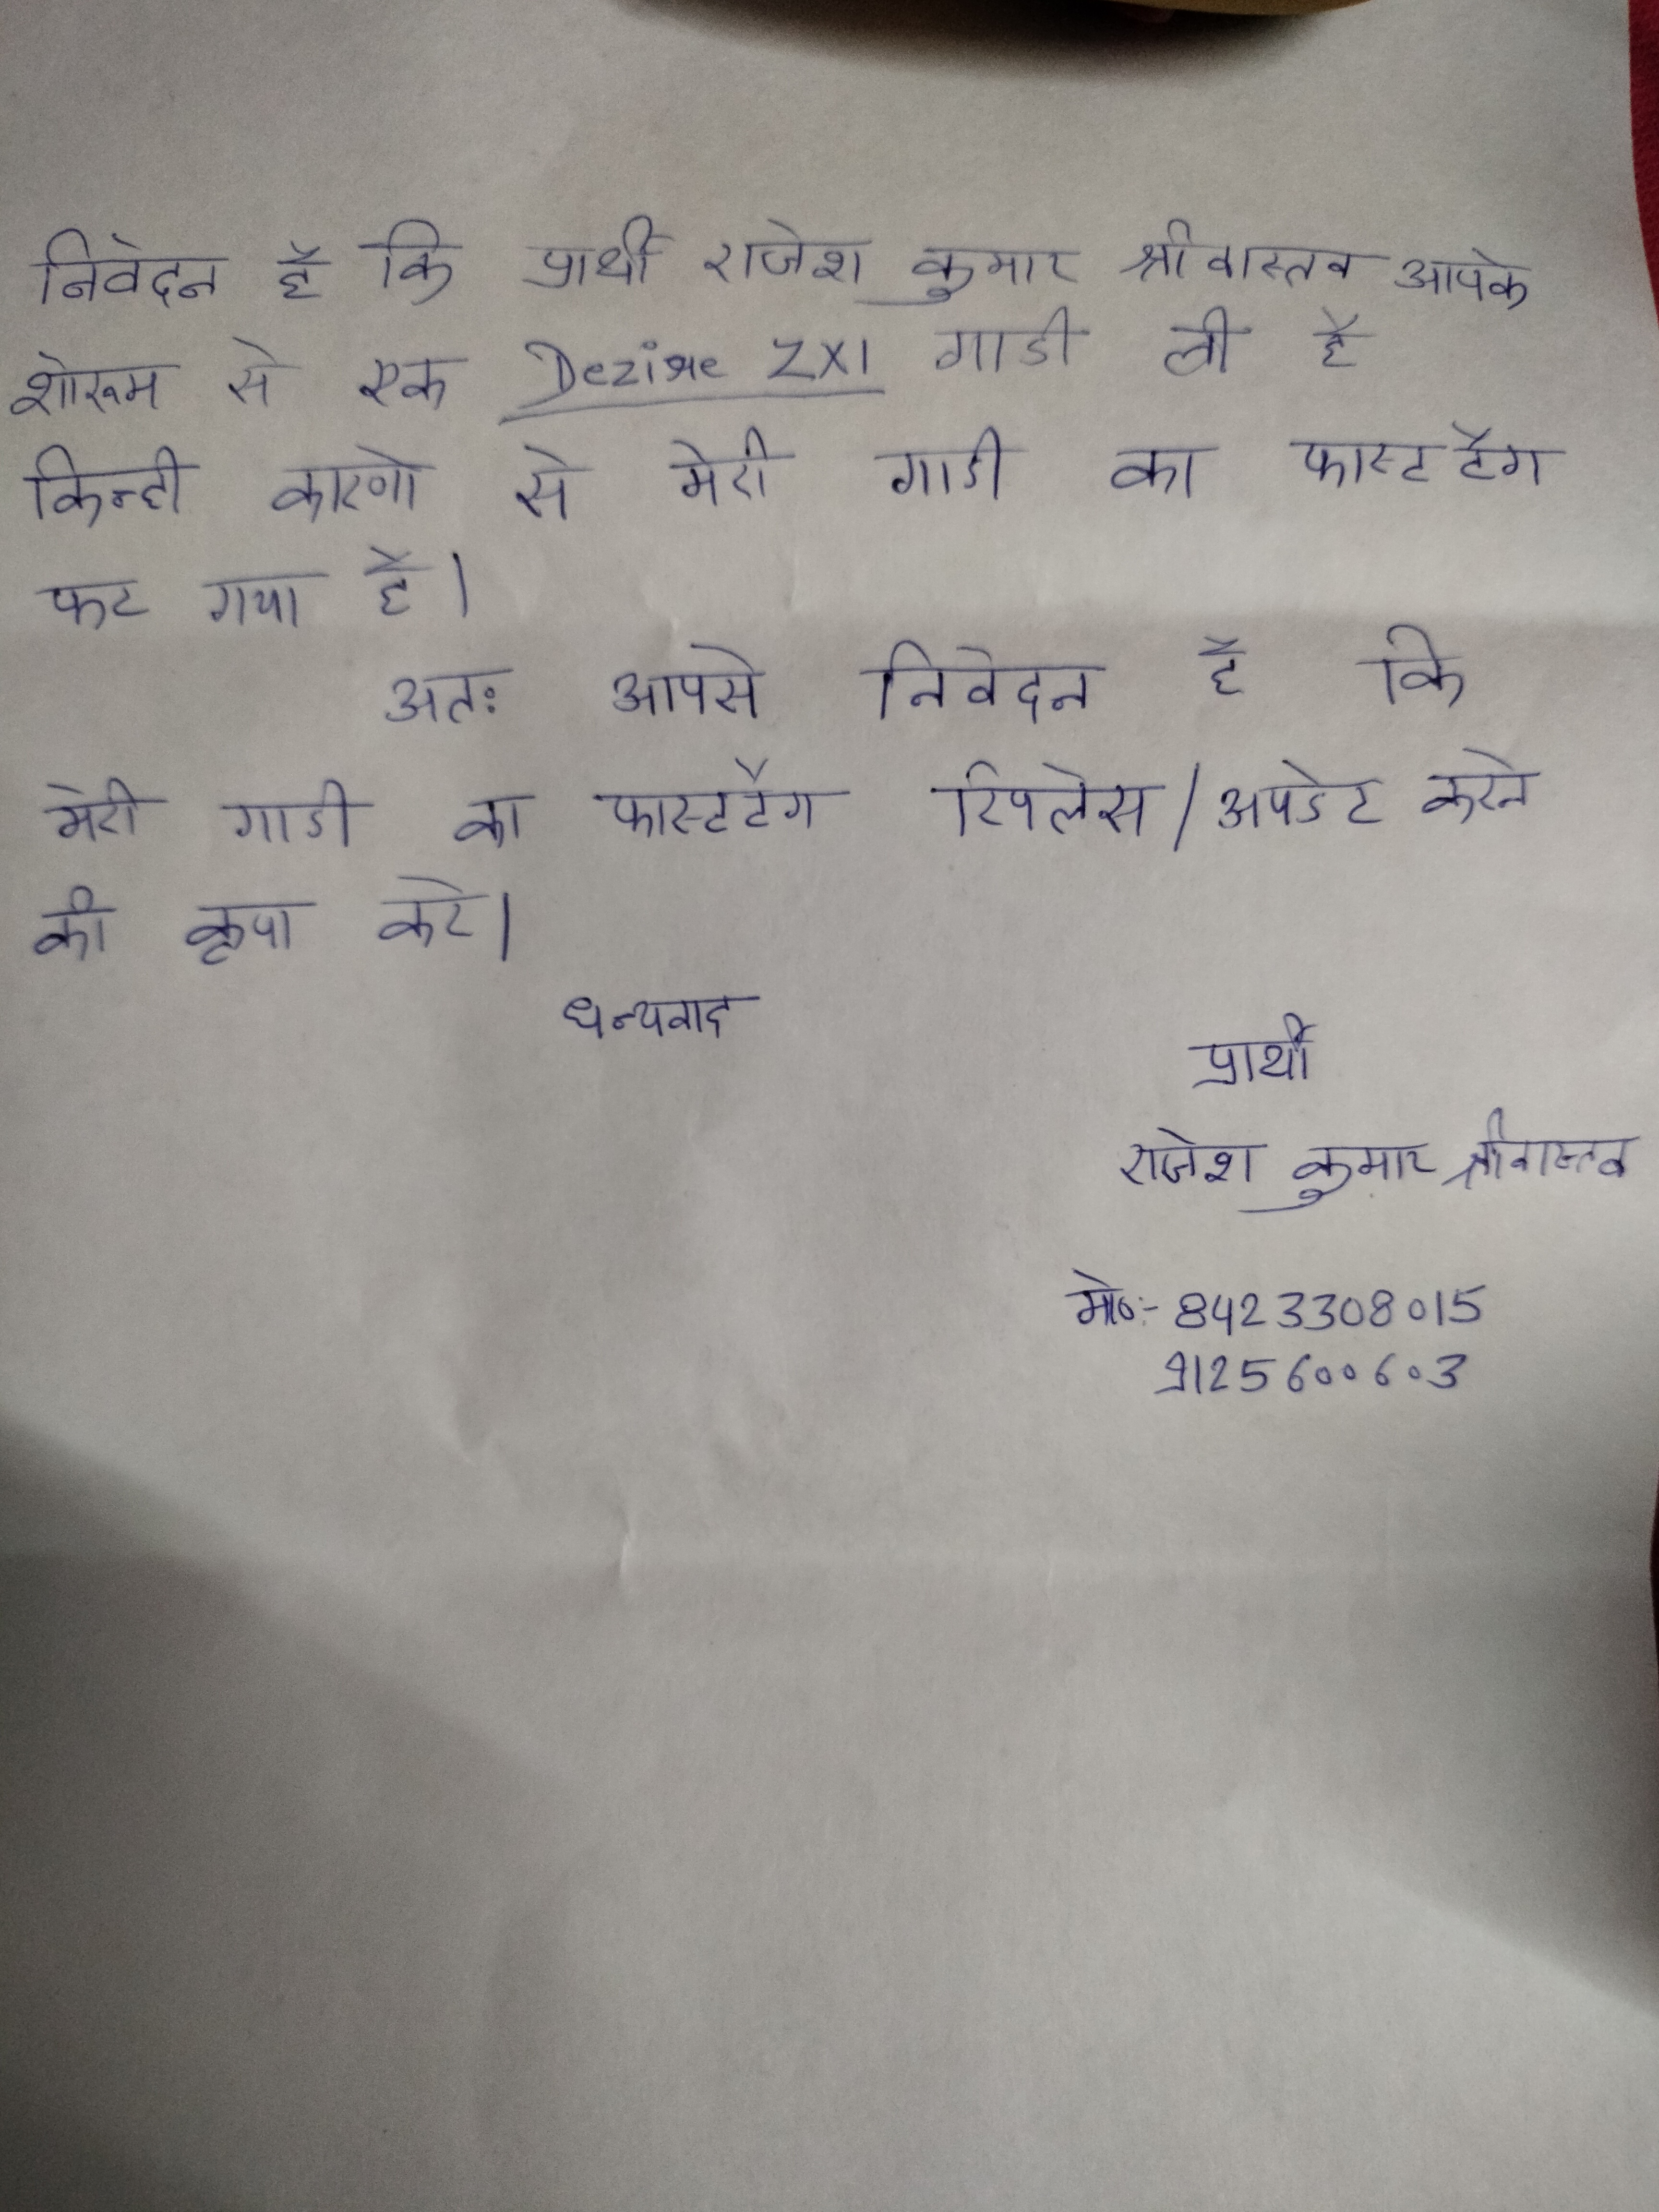 निवेदन है कि प्रार्थी राजेश कुमार श्रीवास्तव आपके
शोरूम से एक Dezire ZXI गाडी ली है
किन्ही कारणो से मेरी गाडी का फास्ट टैग
फट गया है।
अतः आपसे निवेदन है कि
मेरी गाडी का फास्टटैग रिपलेस/अपडेट करने
की कृपा करे।
धन्यवाद
प्रार्थी
राजेश कुमार श्रीवास्तव
मो०:- 8423308015
9125600603